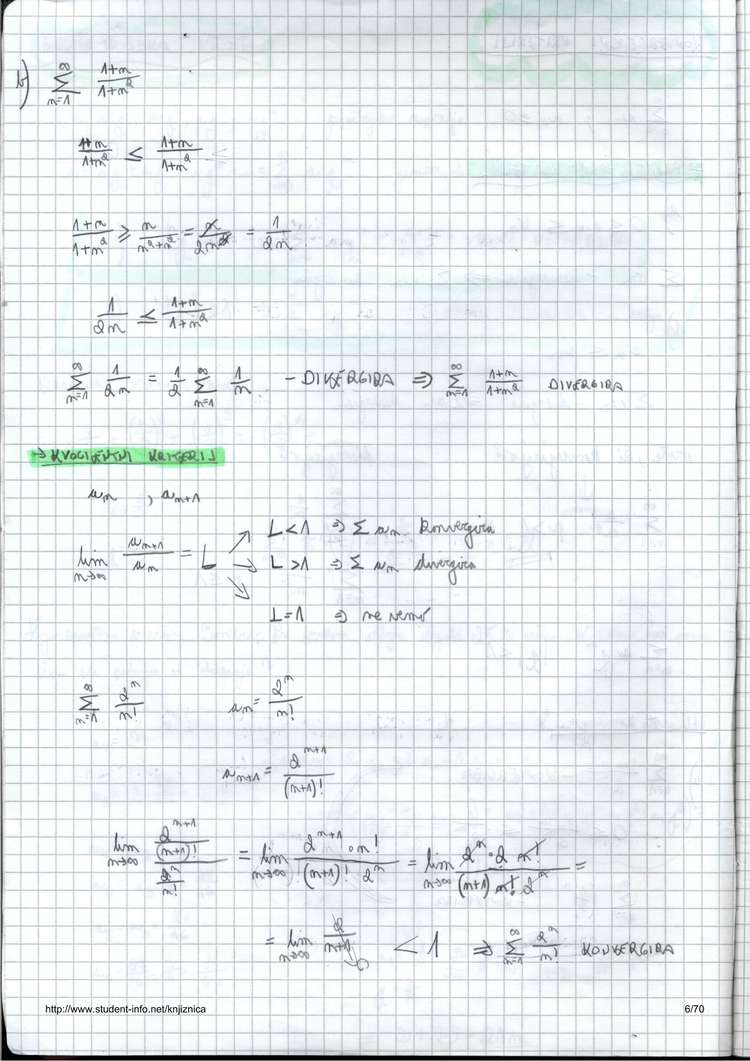 b) ∑_{n=1}^{∞} (1+n)/(1+n²)
(1+n)/(1+n²) ≤ (1+n)/(1+n²)
(1+n)/(1+n²) ≥ n/(n²+n²) = n/(2n²) = 1/(2n)
1/(2n) ≤ (1+n)/(1+n²)
∑_{n=1}^{∞} 1/(2n) = 1/2 ∑_{n=1}^{∞} 1/n - DIVERGIRA ⇒ ∑_{n=1}^{∞} (1+n)/(1+n²) DIVERGIRA
→ KVOCIJENTNI KRITERIJ
a_n , a_{n+1}
L<1 ⇒ ∑ a_n konvergira
lim_{n→∞} a_{n+1}/a_n = L → L>1 ⇒ ∑ a_n divergira
L=1 ⇒ ne znamo
∑_{n=1}^{∞} 2^n/n! a_n = 2^n/n!
a_{n+1} = 2^{n+1}/(n+1)!
lim_{n→∞} (2^{n+1}/(n+1)!)/(2^n/n!) = lim_{n→∞} (2^{n+1} · n!)/((n+1)! 2^n) = lim_{n→∞} (2^n · 2 n!)/((n+1) n! 2^n) =
= lim_{n→∞} 2/(n+1) → 0 < 1 ⇒ ∑_{n=1}^{∞} 2^n/n! KONVERGIRA
http://www.student-info.net/knjiznica 6/70